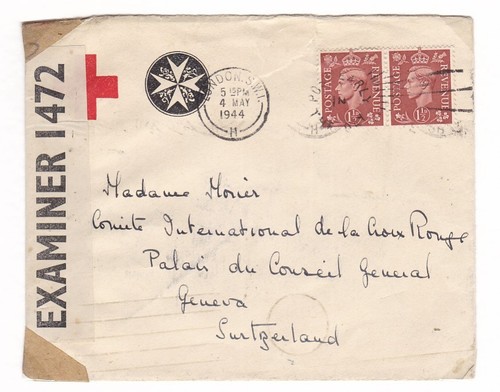 EXAMINER 1472
LONDON. S.W.1.
5 15PM
4 MAY
1944
H
POSTAGE REVENUE
1½D
POSTAGE REVENUE
1½D
Madame Morier
Comité International de la Croix Rouge
Palais du Conseil General
Geneva
Switzerland